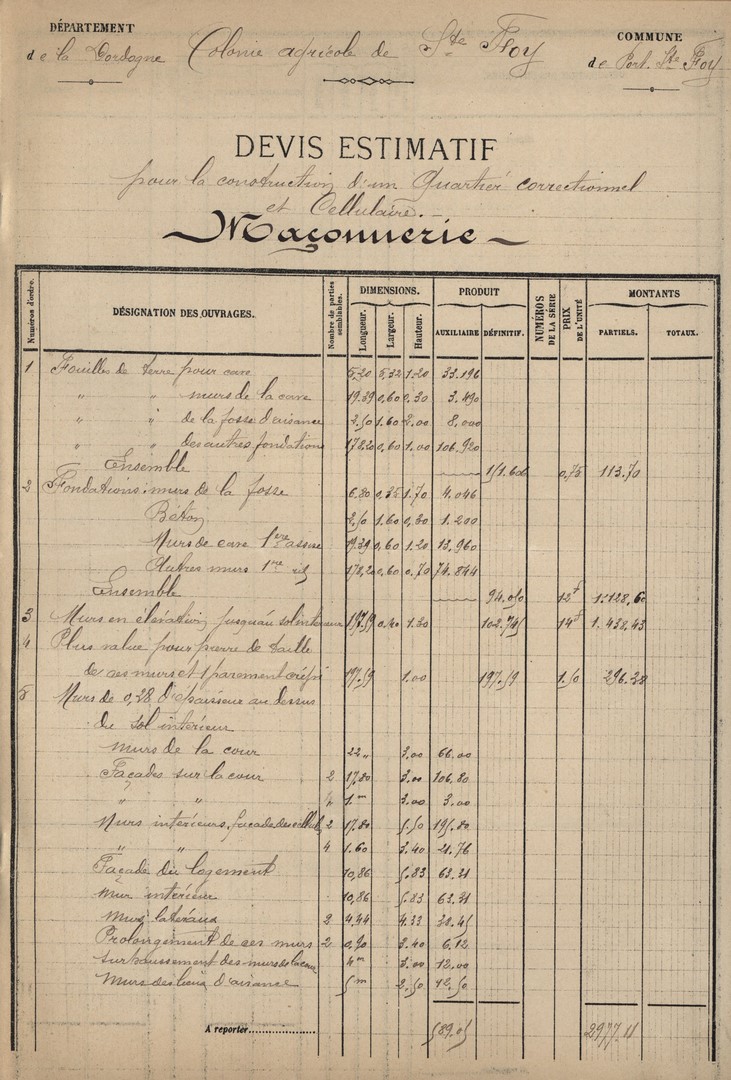 DÉPARTEMENT
de la Dordogne
Colonie agricole de Ste Foy
COMMUNE
de Port Ste Foy
DEVIS ESTIMATIF
pour la construction d'un Quartier correctionnel
et Cellulaire.
Maçonnerie
Numéros d'ordre. DÉSIGNATION DES OUVRAGES. Nombre de parties semblables. DIMENSIONS. Longueur. Largeur. Hauteur. PRODUIT AUXILIAIRE DÉFINITIF. NUMÉROS DE LA SÉRIE PRIX DE L'UNITÉ MONTANTS PARTIELS. TOTAUX.
1 Fouilles de terre pour cave 5,20 5,32 1.20 33.196
" " murs de la cave 19.39 0,60 0,30 3.490
" " de la fosse d'aisance 2,50 1.60 2,00 8,000
" " des autres fondations 178,20 0,60 1,00 106,920
Ensemble 151.606 0,75 113.70
2 Fondations: murs de la fosse 6,80 0,35 1.70 4.046
Béton 2,50 1.60 0,30 1.200
Murs de cave 1ère assise 19.39 0,60 1.20 13,960
Autres murs 1re 178,20 0,60 0,70 74.844
Ensemble 94.050 12f 1.128,60
3 Murs en élévation jusqu'au sol intérieur 197,59 0.40 1.30 102.745 14f 1.438.43
4 Plus value pour pierre de taille
de ces murs et 1 parement crépi 197.59 1.00 197.59 1.50 296.38
5 Murs de 0,28 d'épaisseur au dessus
du sol intérieur
Murs de la cour 22 " 3.00 66.00
Façades sur la cour 2 17,80 3.00 106.80
" " 1.m 3.00 3.00
Murs intérieurs, façade des cellules 2 17.80 5.50 195.80
" " 4 1.60 3.40 21.76
Façade du logement 10,86 5.83 63.31
Mur intérieur 10,86 5.83 63.31
Murs latéraux 2 4,44 4.33 38.45
Prolongement de ces murs 2 0,90 3.40 6.12
Surhaussement des murs de la cour 4m 3.00 12.00
Murs des lieux d'aisance 5m 2.50 12.50
A reporter 589.05 2977.11